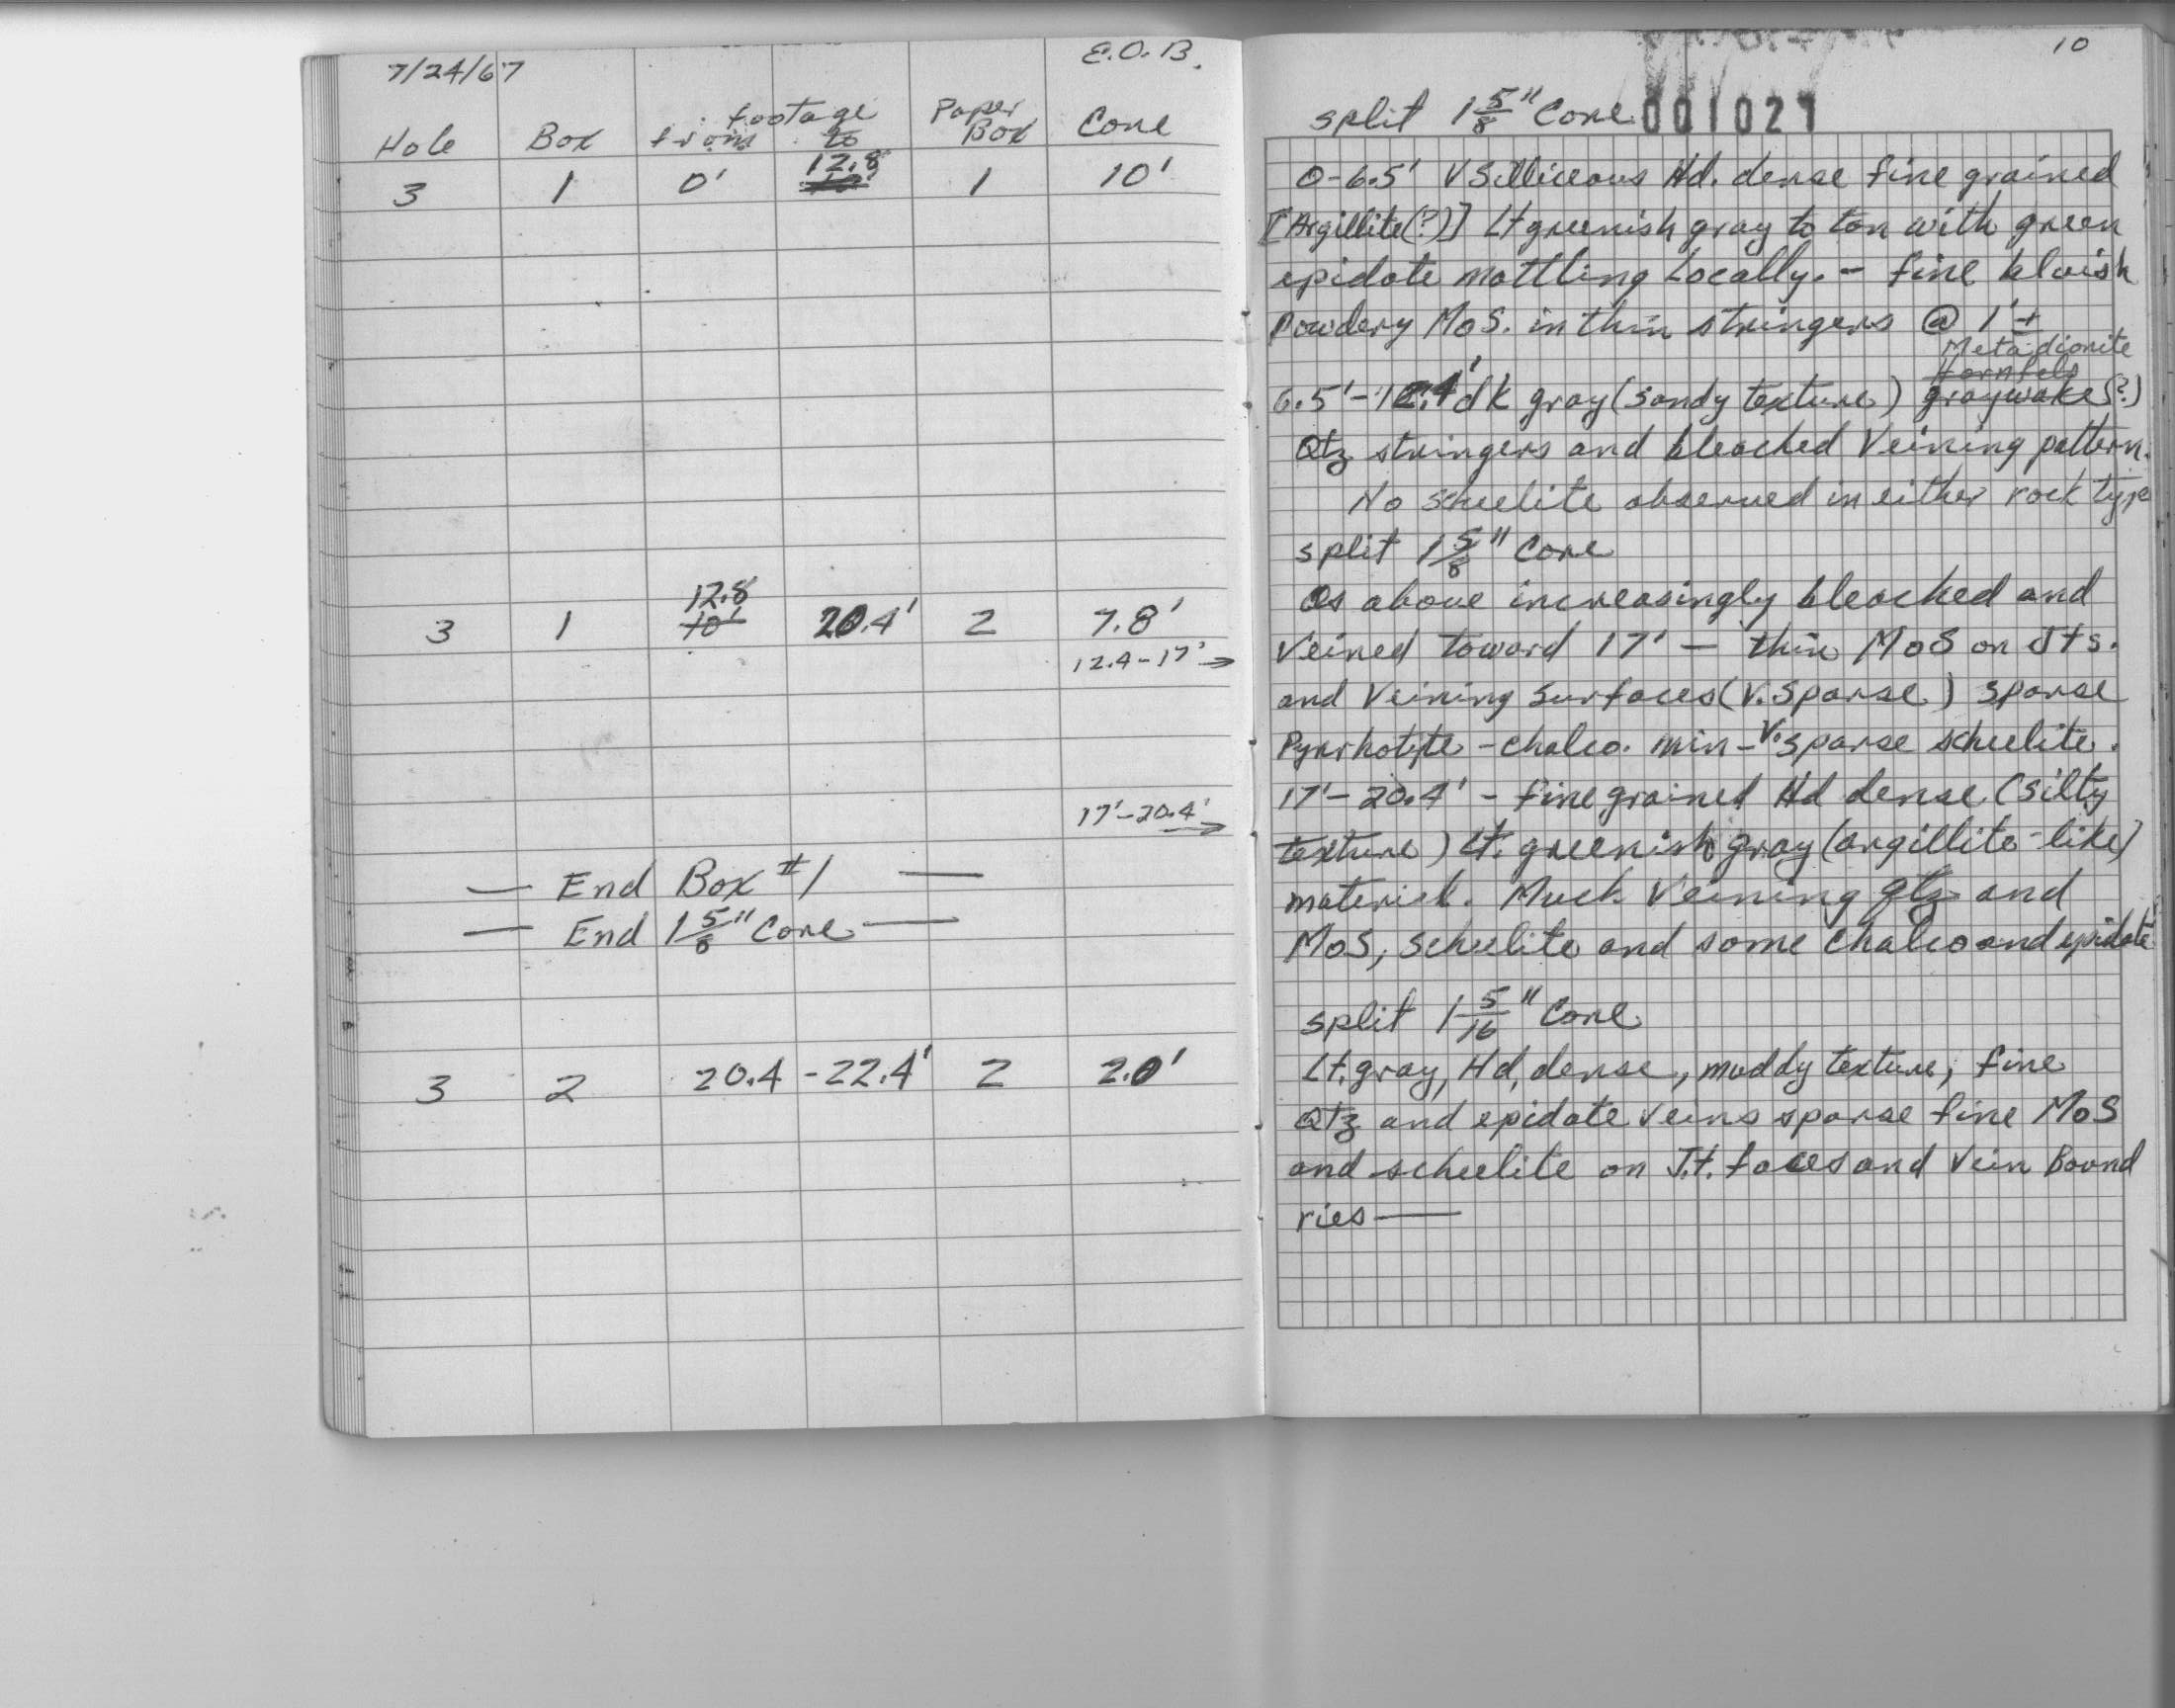 7/24/67 E.O.B.
footage Paper
Hole Box from to Box Core
12.8
3 1 0' 1 10'
12.8
3 1 10' 20.4' 2 7.8'
12.4-17' →
17'-20.4' →
— End Box #1 —
— End 1 5/8" Core —
3 2 20.4 - 22.4' 2 2.0'
10
split 1 5/8" Core 001021
0-6.5' V Silliceous Hd. dense fine grained
[Argillite(?)] Lt greenish gray to tan with green
epidote mottling Locally. - fine bluish
Powdery MoS. in thin stringers @ 1' ±
Metadiorite
Hornfels
6.5'-12.4' dk gray (sandy texture) graywake(?)
Qtz stringers and bleached Veining pattern.
No scheelite observed in either rock type
split 1 5/8" Core
As above increasingly bleached and
Veined toward 17' — thin MoS on Jts.
and Veining Surfaces (V. Sparse) sparse
Pyrrhotite - chalco. min - V. sparse scheelite.
17'-20.4' - fine grained Hd dense (Silty
texture) Lt. greenish gray (argillite-like)
material. Much Veining qtz and
MoS, scheelite and some chalco and epidote
split 1 5/16" Core
Lt. gray, Hd, dense, muddy texture; fine
Qtz and epidote veins sparse fine MoS
and scheelite on Jt. faces and Vein Bound
ries —